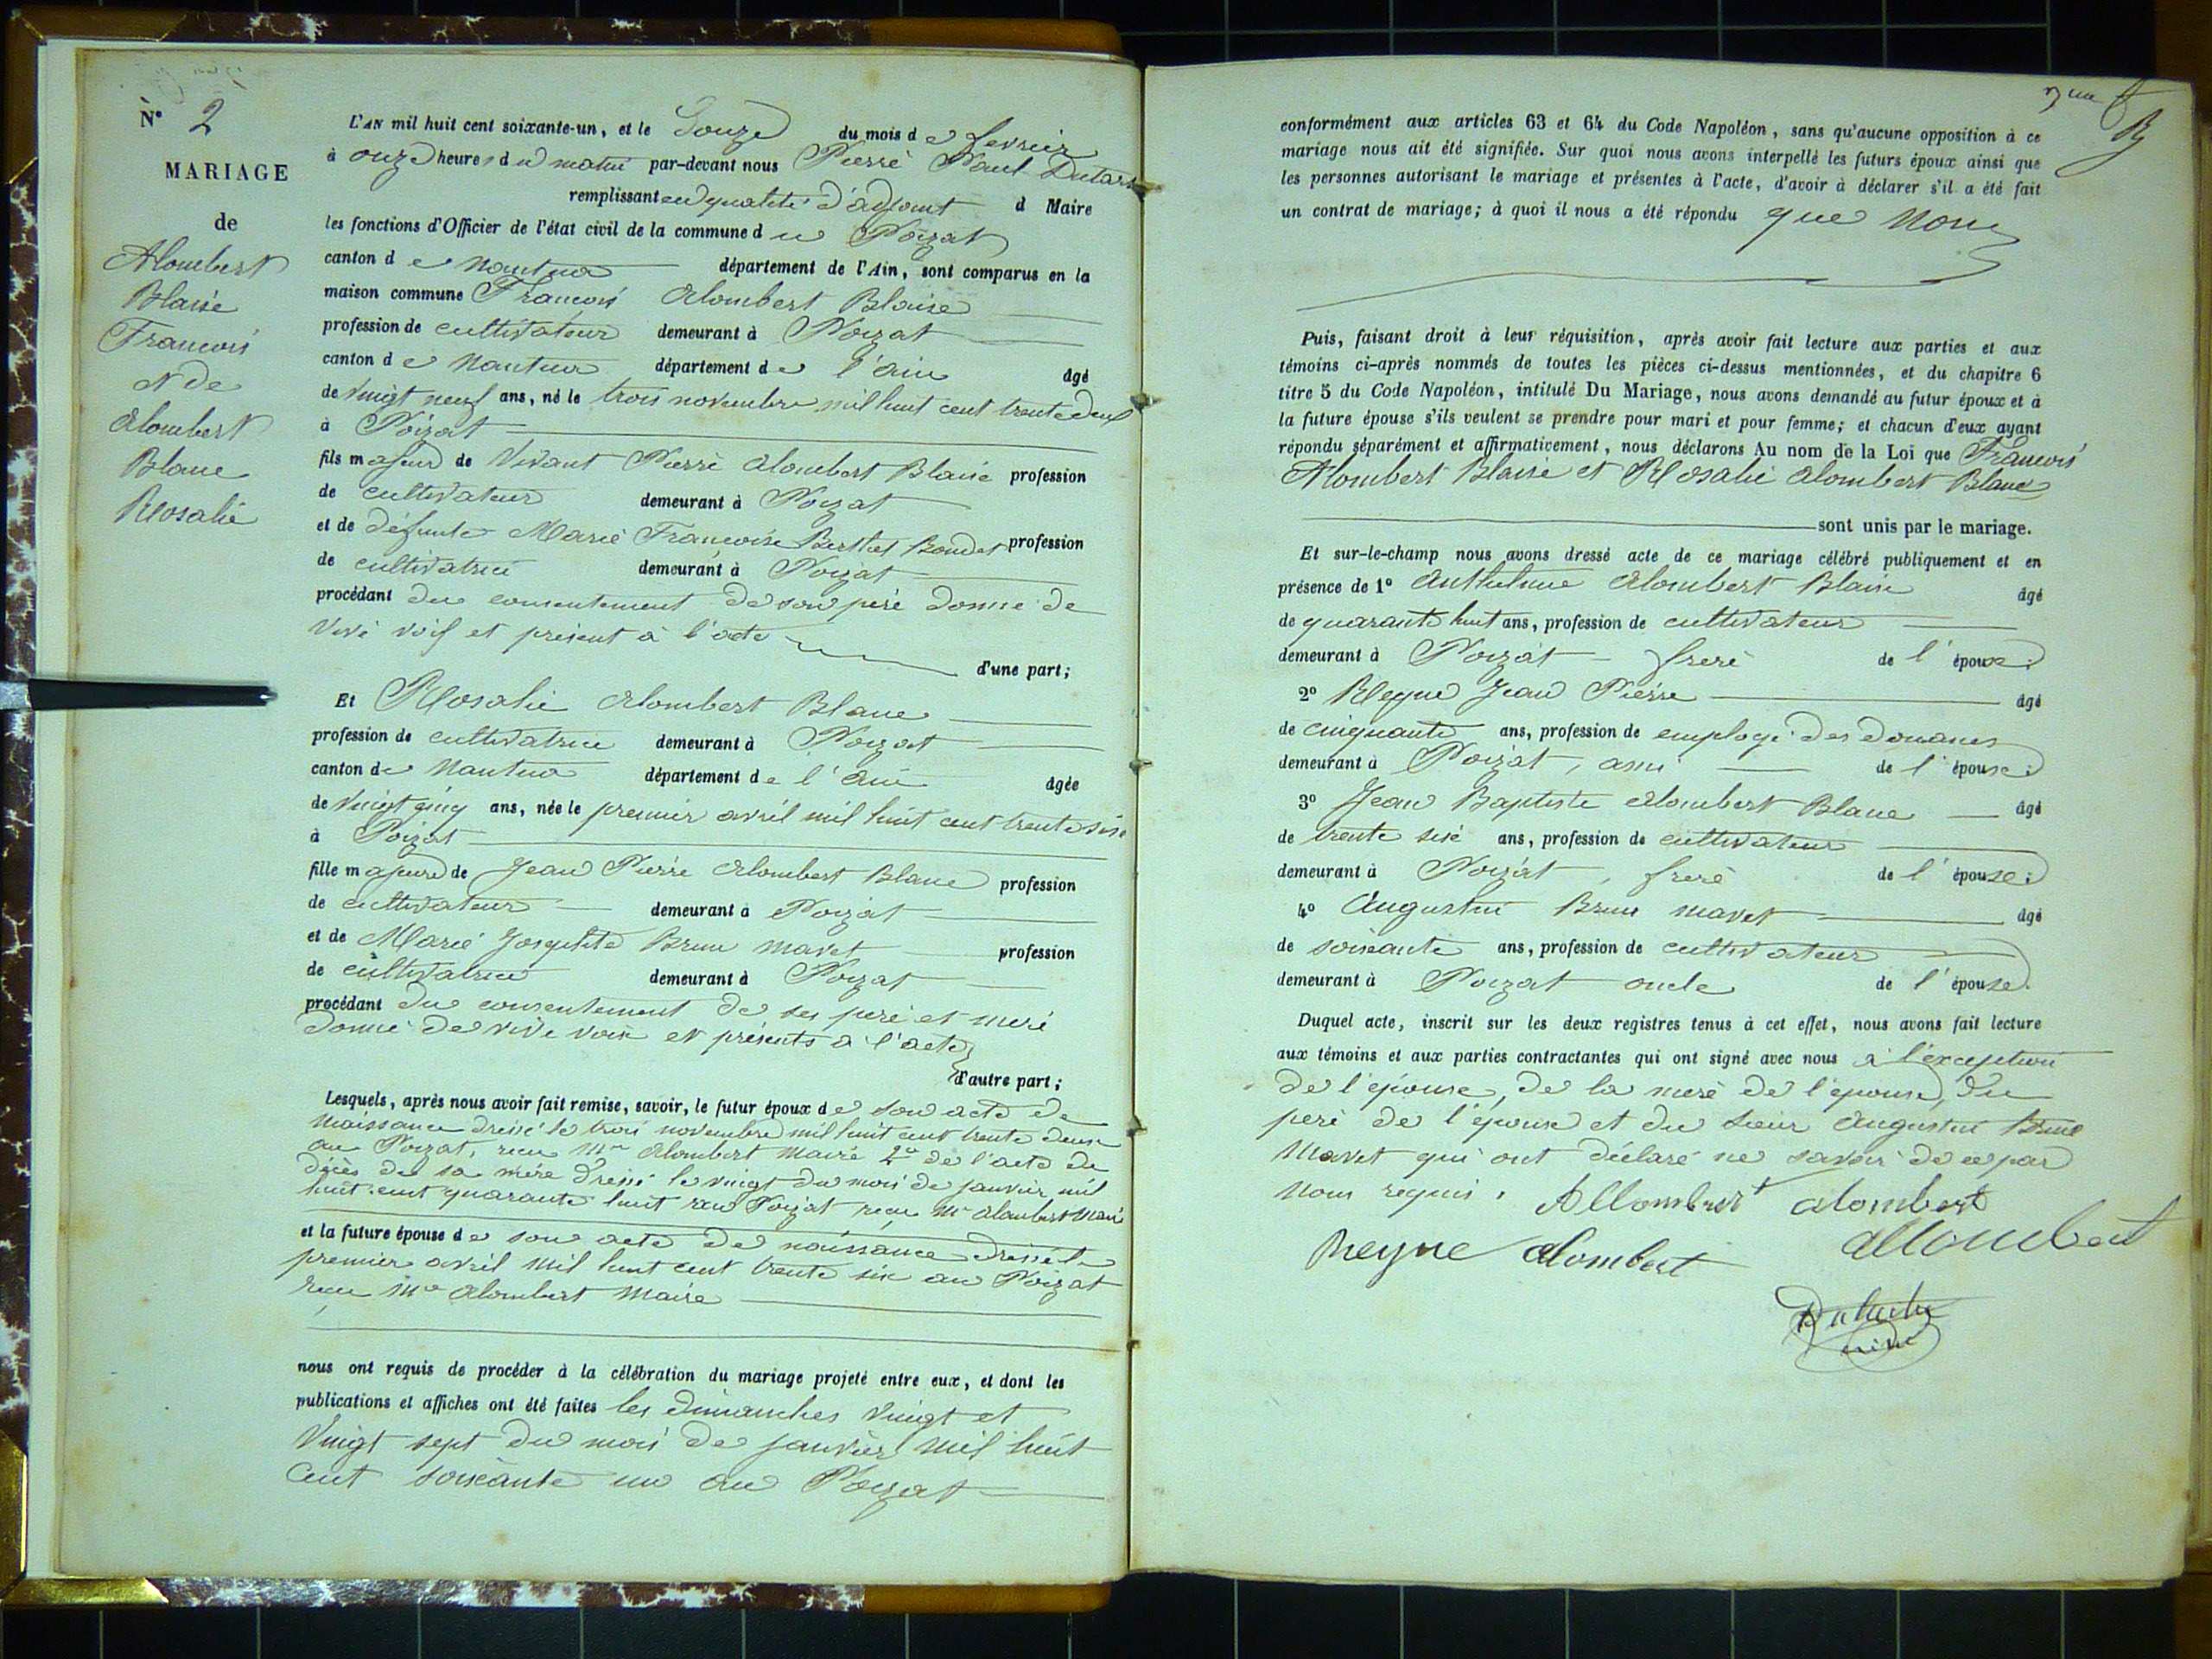 N° 2
MARIAGE
de
Alombert
Blaise
François
& de
Alombert
Blanc
Rosalie
L'AN mil huit cent soixante-un, et le Douze du mois de fevrier
à onze heures du matin par-devant nous Pierre Paul Dutartre
remplissant en qualité d'adjoint d Maire
les fonctions d'Officier de l'état civil de la commune du Poizat
canton de Nantua département de l'Ain, sont comparus en la
maison commune François Alombert Blaise
profession de cultivateur demeurant à Poizat
canton de Nantua département de l'ain âgé
de vingt neuf ans, né le trois novembre mil huit cent trente deux
à Poizat
fils majeur de Vivant Pierre Alombert Blaise profession
de cultivateur demeurant à Poizat
et de défunte Marie Françoise Berthet Bondet profession
de cultivatrice demeurant à Poizat
procédant du consentement de son père donné de
vive voix et présent à l'acte
d'une part;
Et Rosalie Alombert Blanc
profession de cultivatrice demeurant à Poizat
canton de Nantua département de l'ain âgée
de vingt cinq ans, née le premier avril mil huit cent trente six
à Poizat
fille majeure de Jean Pierre Alombert Blanc profession
de cultivateur demeurant à Poizat
et de Marie Josephte Brun mavet profession
de cultivatrice demeurant à Poizat
procédant du consentement de ses père et mère
donné de vive voix et présents à l'acte
d'autre part;
Lesquels, après nous avoir fait remise, savoir, le futur époux de son acte de
naissance dressé le trois novembre mil huit cent trente deux
au Poizat, reçu Mr Alombert maire 2° de l'acte de
décès de sa mère dressé le vingt du mois de janvier mil
huit cent quarante huit au Poizat reçu Mr Alombert Maire
et la future épouse de son acte de naissance dressé le
premier avril mil huit cent trente six au Poizat
reçu Mr Alombert Maire
nous ont requis de procéder à la célébration du mariage projeté entre eux, et dont les
publications et affiches ont été faites les dimanches vingt et
vingt sept du mois de janvier mil huit
cent soixante un au Poizat
conformément aux articles 63 et 64 du Code Napoléon, sans qu'aucune opposition à ce
mariage nous ait été signifiée. Sur quoi nous avons interpellé les futurs époux ainsi que
les personnes autorisant le mariage et présentes à l'acte, d'avoir à déclarer s'il a été fait
un contrat de mariage; à quoi il nous a été répondu que non
Puis, faisant droit à leur réquisition, après avoir fait lecture aux parties et aux
témoins ci-après nommés de toutes les pièces ci-dessus mentionnées, et du chapitre 6
titre 5 du Code Napoléon, intitulé Du Mariage, nous avons demandé au futur époux et à
la future épouse s'ils veulent se prendre pour mari et pour femme; et chacun d'eux ayant
répondu séparément et affirmativement, nous déclarons Au nom de la Loi que François
Alombert Blaise et Rosalie Alombert Blanc
sont unis par le mariage.
Et sur-le-champ nous avons dressé acte de ce mariage célébré publiquement et en
présence de 1° Anthelme Alombert Blaise âgé
de quarante huit ans, profession de cultivateur
demeurant à Poizat frère de l'époux;
2° Reyne Jean Pierre âgé
de cinquante ans, profession de employé des douanes
demeurant à Poizat, ami de l'épouse;
3° Jean Baptiste Alombert Blanc âgé
de trente six ans, profession de cultivateur
demeurant à Poizat, frère de l'épouse;
4° Augustin Brun mavet âgé
de soixante ans, profession de cultivateur
demeurant à Poizat oncle de l'épouse.
Duquel acte, inscrit sur les deux registres tenus à cet effet, nous avons fait lecture
aux témoins et aux parties contractantes qui ont signé avec nous à l'exception
de l'épouse, de la mère de l'épouse, du
père de l'épouse et du sieur Augustin Brun
Mavet qui ont déclaré ne savoir de ce par
nous requis. Allombert alombert
Reyne alombert allombert
Dutartre